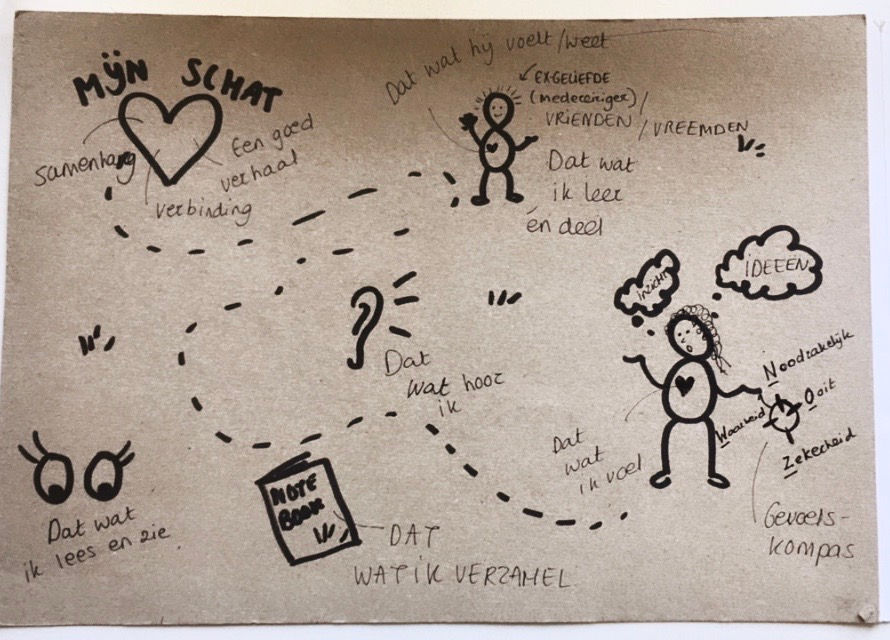 MIJN SCHAT
Samenhang
verbinding
Een goed
verhaal
Dat wat hij voelt/weet
EX-GELIEFDE
(medereiziger)/
VRIENDEN / VREEMDEN
Dat wat
ik leer
én deel
Inzicht
IDEEËN
Dat
wat hoor
ik
Noodzakelijk
Ooit
Waarheid
Zekerheid
Dat
wat
ik voel
Gevoels-
kompas
Dat wat
ik lees en zie
NOTE
BOOK
DAT
WAT IK VERZAMEL